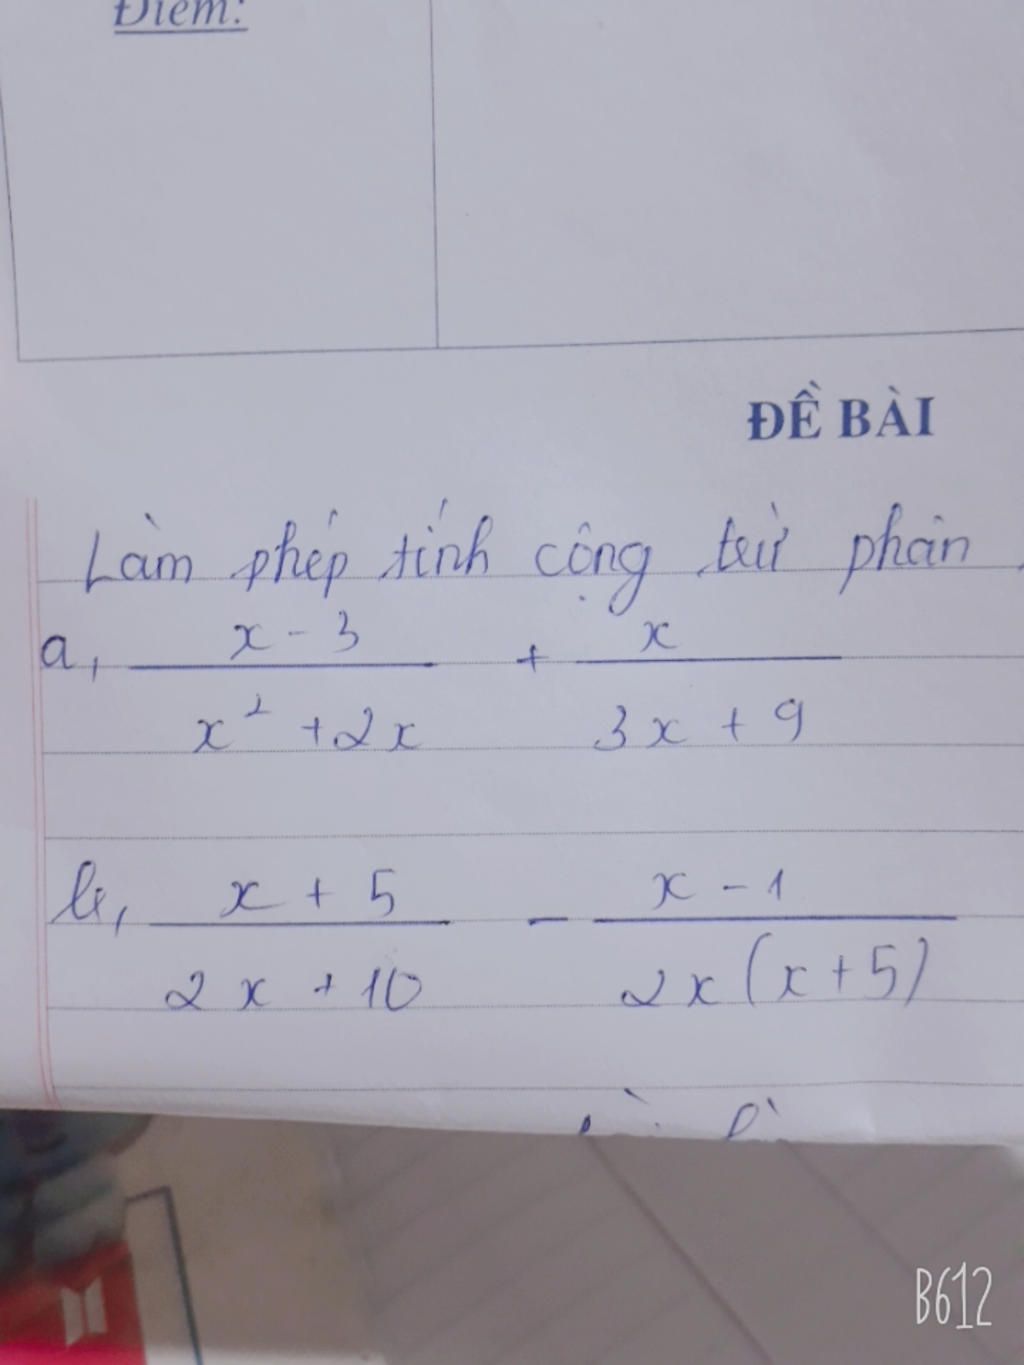 Điểm:
ĐỀ BÀI
Làm phép tính cộng trừ phân
a, x - 3 / x² + 2x + x / 3x + 9
b, x + 5 / 2x + 10 - x - 1 / 2x(x + 5)
B612